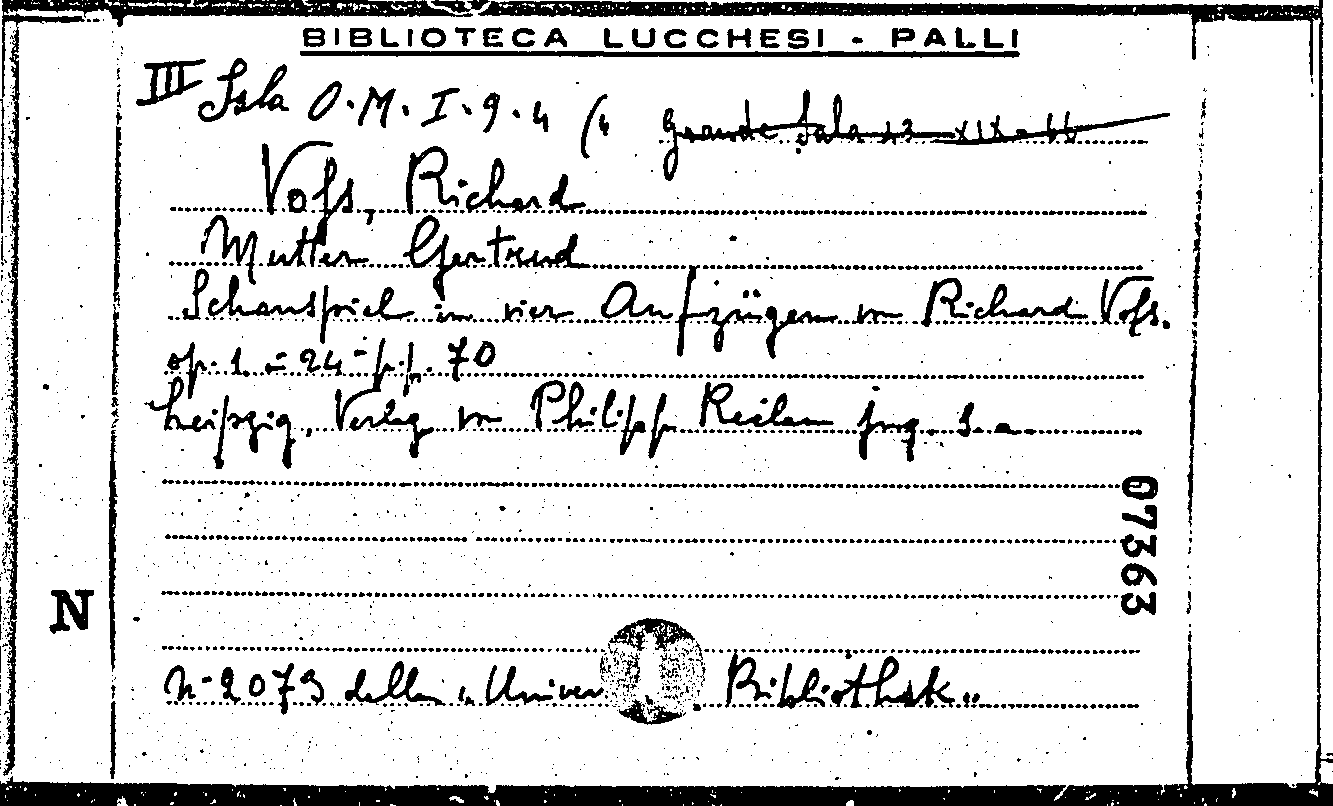 BIBLIOTECA LUCCHESI - PALLI
III Sala O.M.I.9.4 (4 Grande Sala 23 XIX-66
Vofs, Richard
Mutter Gertrud
Schauspiel in vier Aufzügen von Richard Vofs.
op. 1. = 24- p.p. 70
Leipzig, Verlag von Philipp Reclam jng. s. a.
07363
N
N- 2073 della " Univer Bibliothek "